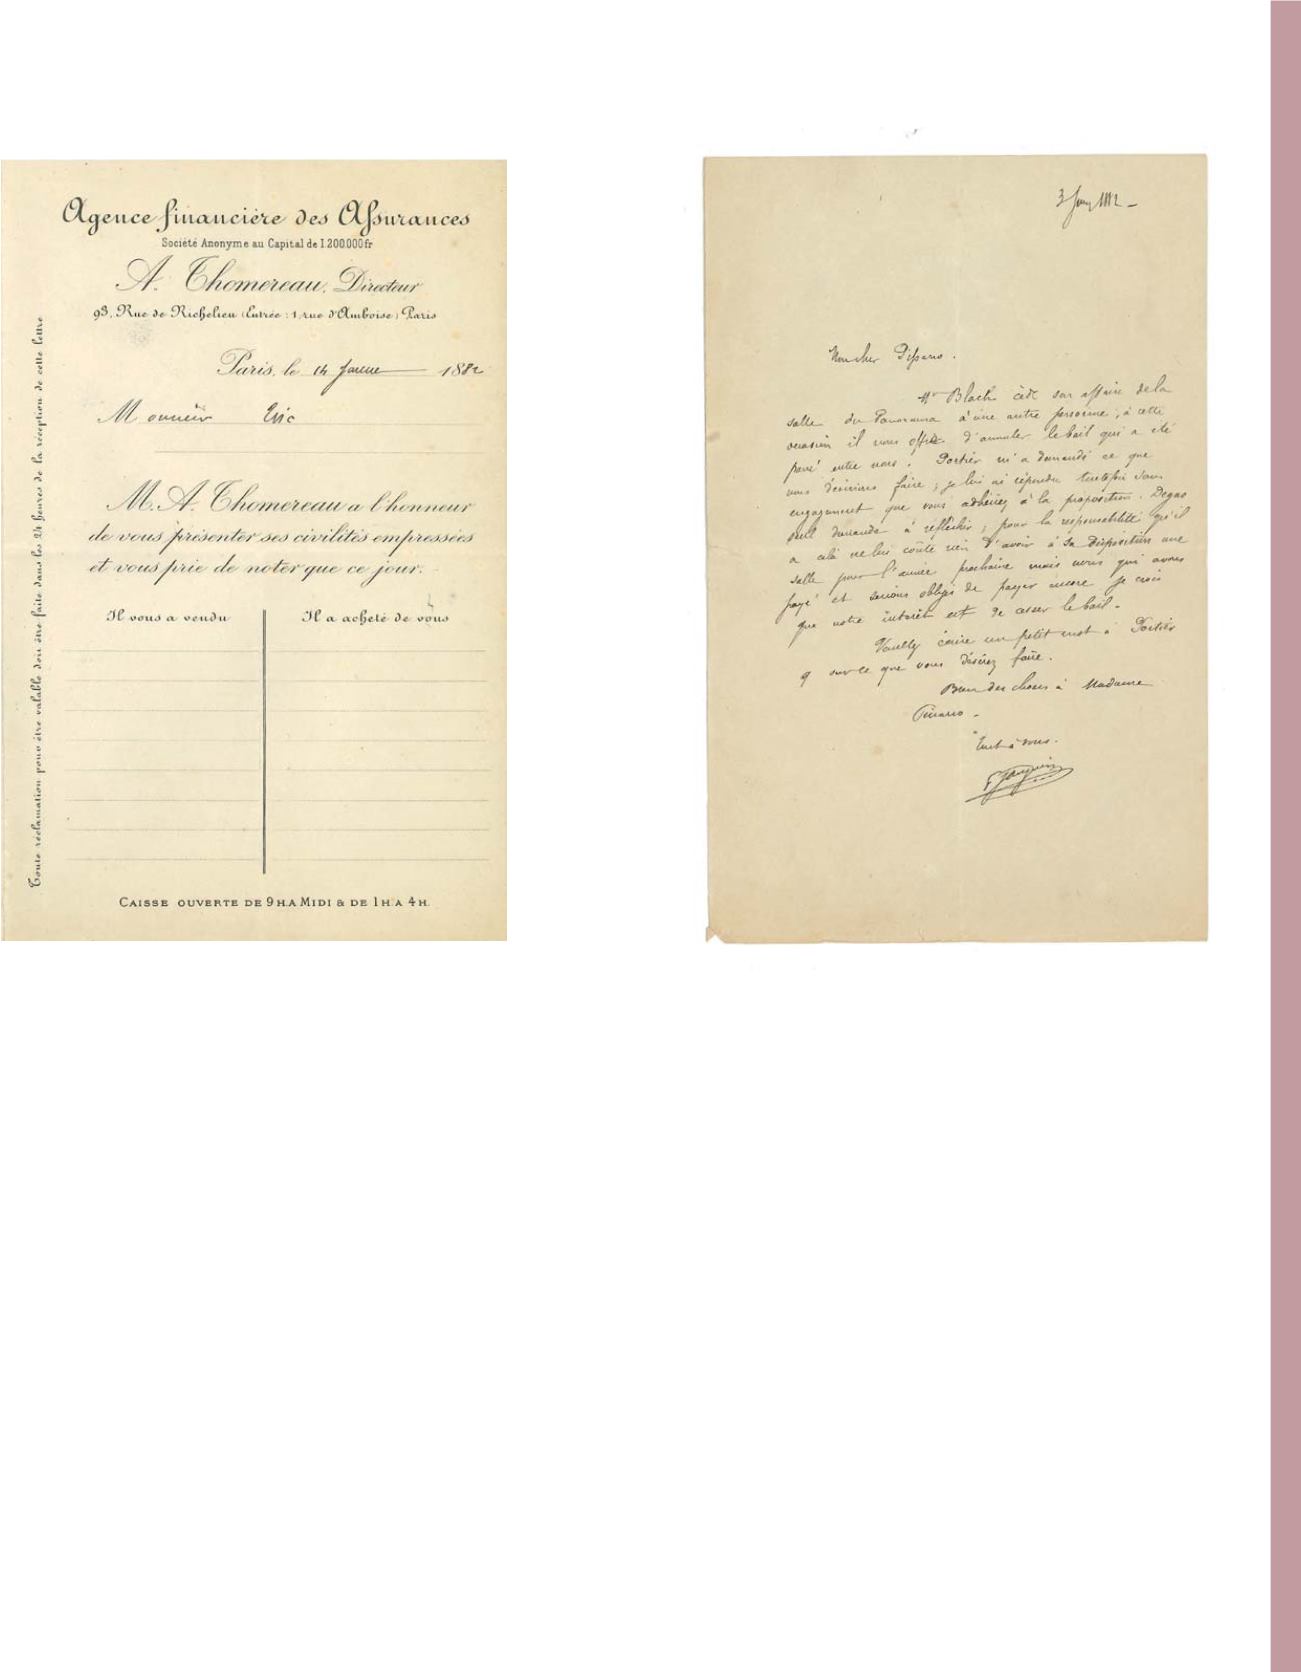 Agence financière des Assurances
Société Anonyme au Capital de 1.200.000 fr
A. Thomereau, Directeur
93, Rue de Richelieu (Entrée : 1, rue d'Amboise) Paris
Paris, le 14 1882
Monsieur Eric
M. A. Thomereau a l'honneur
de vous présenter ses civilités empressées
et vous prie de noter que ce jour.
Il vous a vendu
Il a acheté de vous
CAISSE OUVERTE DE 9 H. A MIDI & DE 1 H. A 4 H.
Toute réclamation pour être valable doit être faite dans les 24 heures de la réception de cette lettre
3 1882 -
Mon cher Pissaro.
Mr Bloch cède son affaire de la
salle du Panorama à une autre personne ; à cette
occasion il nous offre d'annuler le bail qui a été
passé entre nous. Portier m'a demandé ce que
nous désirions faire ; je lui ai répondu toutefois sans
engagement que vous adhériez à la proposition. Degas
seul demande à réfléchir ; pour la responsabilité qu'il
a celà ne lui coûte rien d'avoir à sa disposition une
salle pour l'année prochaine mais nous qui avons
payé et serions obligés de payer encore je crois
que notre intérêt est de casser le bail -
Veuillez écrire un petit mot à Portier
sur ce que vous désirez faire.
Bien des choses à Madame
Pissaro -
Tout à vous.
P Gauguin